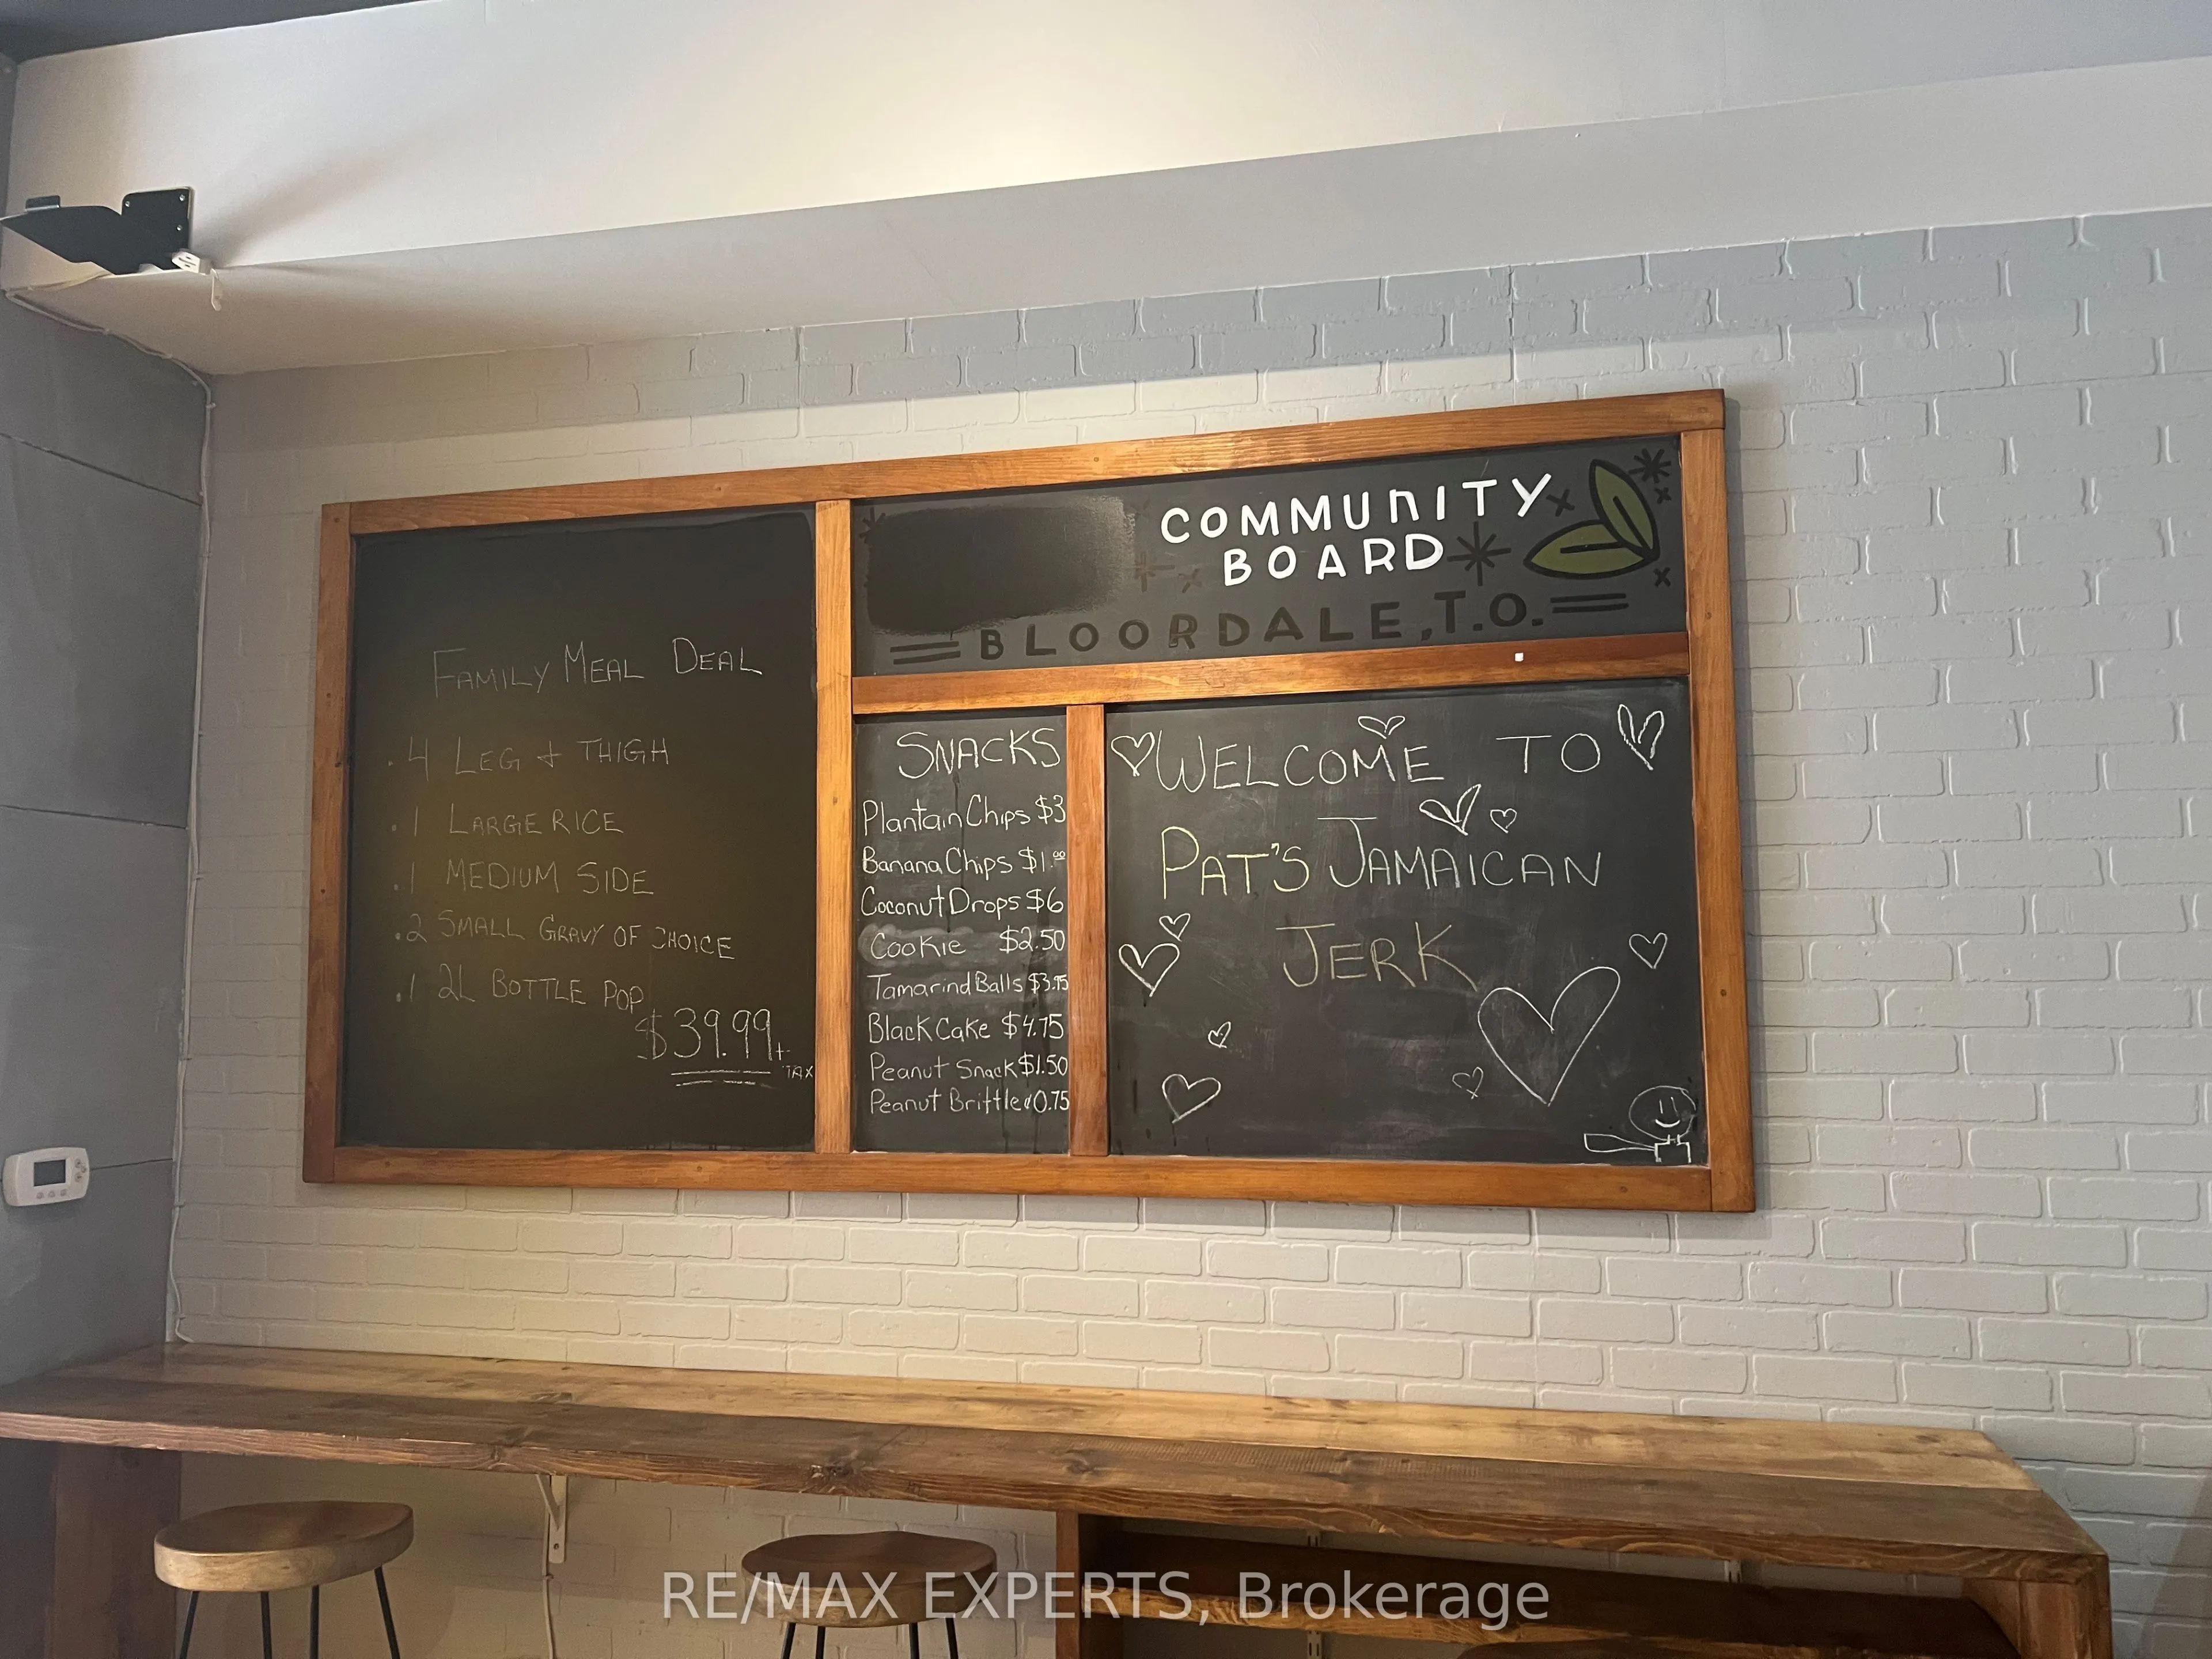 FAMILY MEAL DEAL
. 4 LEG & THIGH
. 1 LARGE RICE
. 1 MEDIUM SIDE
. 2 SMALL GRAVY OF CHOICE
. 1 2L BOTTLE POP
$39.99+
TAX
COMMUNITY
BOARD
BLOORDALE, T.O.
SNACKS
Plantain Chips $3
Banana Chips $1.00
Coconut Drops $6
Cookie $2.50
Tamarind Balls $3.75
Black Cake $4.75
Peanut Snack $1.50
Peanut Brittle 0.75
WELCOME TO
PAT'S JAMAICAN
JERK
RE/MAX EXPERTS, Brokerage